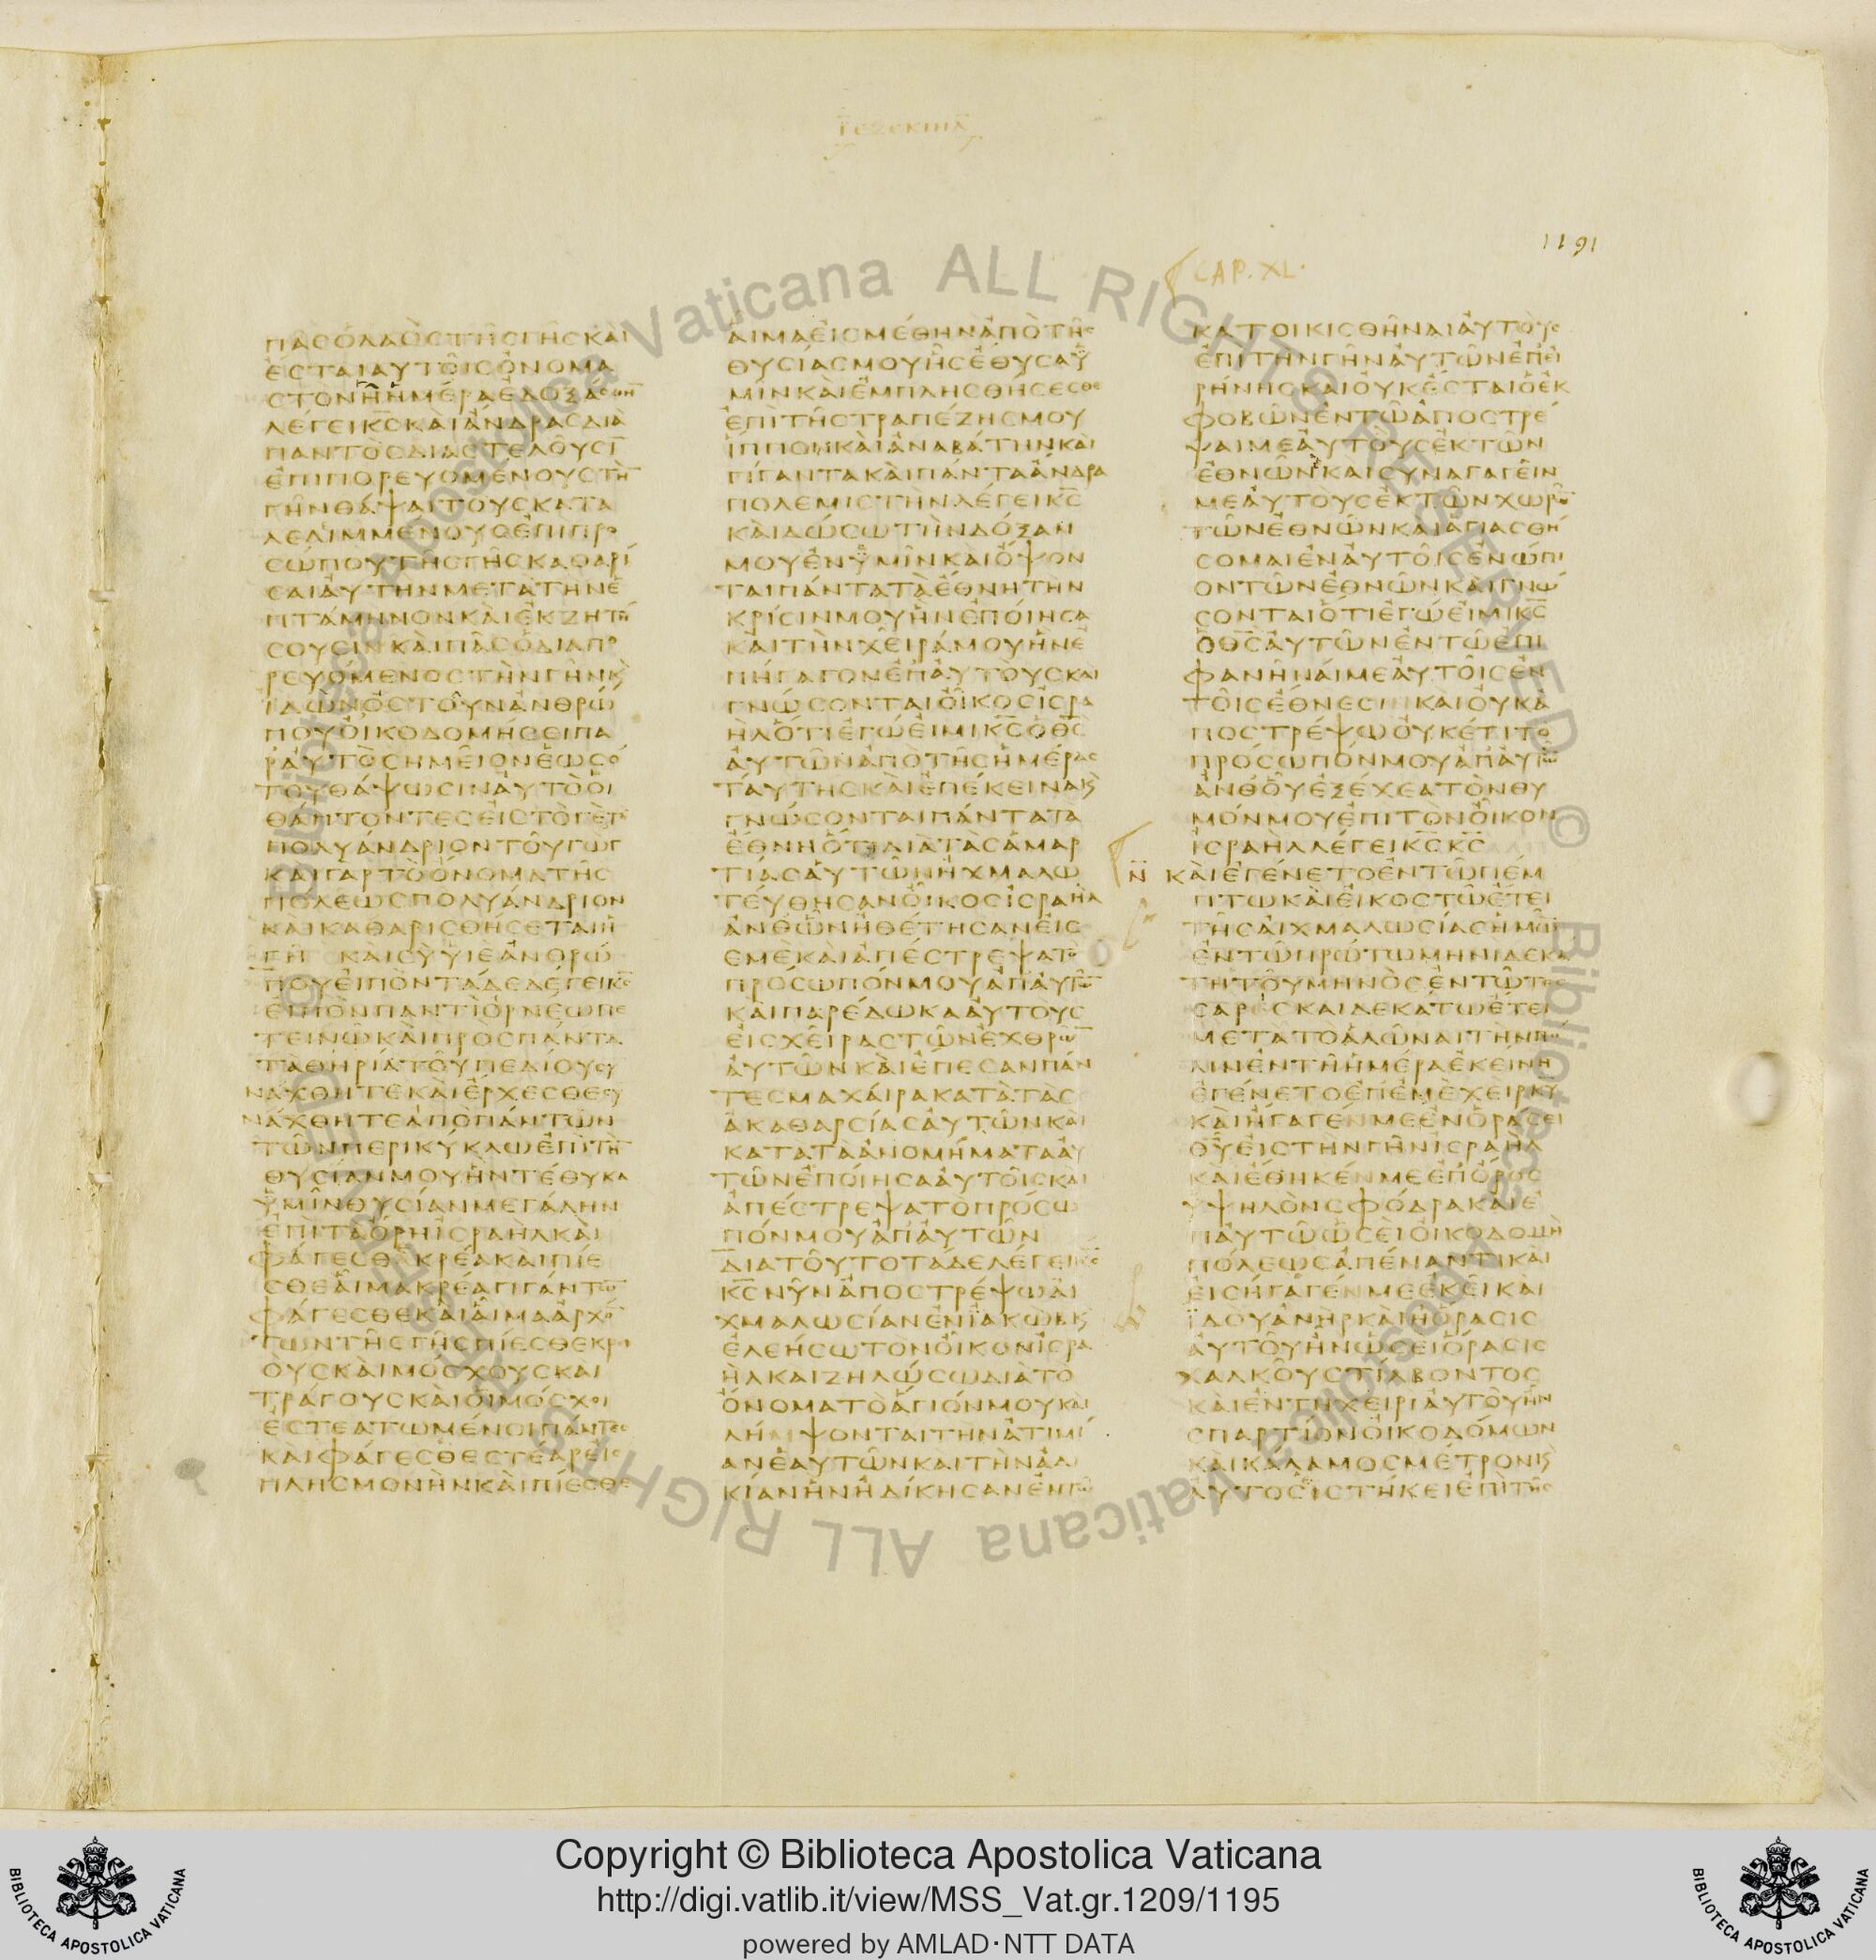 ϊεζεκιηλ
1191
CAP. XL.
ΠΑΣΟΛΑΟΣΤΗΣΓΗΣΚΑΙ
ΕΣΤΑΙΑΥΤΟΙΣΟΝΟΜΑ
ΣΤΟΝΗΗΜΕΡΑΕΔΟΞΑΣΘΗ
ΛΕΓΕΙΚΣΚΑΙΑΝΔΡΑΣΔΙΑ
ΠΑΝΤΟΣΔΙΑΣΤΕΛΟΥΣΙ
ΕΠΙΠΟΡΕΥΟΜΕΝΟΥΣΤΗ
ΓΗΝΘΑΨΑΙΤΟΥΣΚΑΤΑ
ΛΕΛΙΜΜΕΝΟΥΣΕΠΙΠΡΟ
ΣΩΠΟΥΤΗΣΓΗΣΚΑΘΑΡΙ
ΣΑΙΑΥΤΗΝΜΕΤΑΤΗΝΕ
ΠΤΑΜΗΝΟΝΚΑΙΕΚΖΗΤΗ
ΣΟΥΣΙΝΚΑΙΠΑΣΟΔΙΑΠΟ
ΡΕΥΟΜΕΝΟΣΤΗΝΓΗΝΚ
ΙΔΩΝΟΣΤΟΥΝΑΝΘΡΩ
ΠΟΥΟΙΚΟΔΟΜΗΣΕΙΠΑ
ΡΑΥΤΟΣΗΜΕΙΟΝΕΩΣΟ
ΤΟΥΘΑΨΩΣΙΝΑΥΤΟΟΙ
ΘΑΠΤΟΝΤΕΣΕΙΣΤΟΓΕΤΟ
ΠΟΛΥΑΝΔΡΙΟΝΤΟΥΓΩΓ
ΚΑΙΓΑΡΤΟΟΝΟΜΑΤΗΣ
ΠΟΛΕΩΣΠΟΛΥΑΝΔΡΙΟΝ
ΚΑΙΚΑΘΑΡΙΣΘΗΣΕΤΑΙΗ
ΓΗ ΚΑΙΣΥΥΙΕΑΝΘΡΩ
ΠΟΥΕΙΠΟΝΤΑΔΕΛΕΓΕΙΚΣ
ΕΙΠΟΝΠΑΝΤΙΟΡΝΕΩΠΕ
ΤΕΙΝΩΚΑΙΠΡΟΣΠΑΝΤΑ
ΤΑΘΗΡΙΑΤΟΥΠΕΔΙΟΥΣΥ
ΝΑΧΘΗΤΕΚΑΙΕΡΧΕΣΘΕΣΥ
ΝΑΧΘΗΤΕΑΠΟΠΑΝΤΩΝ
ΤΩΝΠΕΡΙΚΥΚΛΩΕΠΙΤΗ
ΘΥΣΙΑΝΜΟΥΗΝΤΕΘΥΚΑ
ΥΜΙΝΘΥΣΙΑΝΜΕΓΑΛΗΝ
ΕΠΙΤΑΟΡΗΙΣΡΑΗΛΚΑΙ
ΦΑΓΕΣΘΕΚΡΕΑΚΑΙΠΙΕ
ΣΘΕΑΙΜΑΚΡΕΑΓΙΓΑΝΤΩ
ΦΑΓΕΣΘΕΚΑΙΑΙΜΑΑΡΧΟ
ΤΩΝΤΗΣΓΗΣΠΙΕΣΘΕΚΡΙ
ΟΥΣΚΑΙΜΟΣΧΟΥΣΚΑΙ
ΤΡΑΓΟΥΣΚΑΙΟΙΜΟΣΧΟΙ
ΕΣΤΕΑΤΩΜΕΝΟΙΠΑΝΤΕΣ
ΚΑΙΦΑΓΕΣΘΕΣΤΕΑΡΕΙΣ
ΠΛΗΣΜΟΝΗΝΚΑΙΠΙΕΣΘΕ
ΑΙΜΑΕΙΣΜΕΘΗΝΑΠΟΤΗΣ
ΘΥΣΙΑΣΜΟΥΗΣΕΘΥΣΑΥ
ΜΙΝΚΑΙΕΜΠΛΗΣΘΗΣΕΣΘΕ
ΕΠΙΤΗΣΤΡΑΠΕΖΗΣΜΟΥ
ΙΠΠΟΝΚΑΙΑΝΑΒΑΤΗΝΚΑΙ
ΓΙΓΑΝΤΑΚΑΙΠΑΝΤΑΑΝΔΡΑ
ΠΟΛΕΜΙΣΤΗΝΛΕΓΕΙΚΣ
ΚΑΙΔΩΣΩΤΗΝΔΟΞΑΝ
ΜΟΥΕΝΥΜΙΝΚΑΙΟΨΟΝ
ΤΑΙΠΑΝΤΑΤΑΕΘΝΗΤΗΝ
ΚΡΙΣΙΝΜΟΥΗΝΕΠΟΙΗΣΑ
ΚΑΙΤΗΝΧΕΙΡΑΜΟΥΗΝΕ
ΠΗΓΑΓΟΝΕΠΑΥΤΟΥΣΚΑΙ
ΓΝΩΣΟΝΤΑΙΟΙΚΟΣΙΣΡΑ
ΗΛΟΤΙΕΓΩΕΙΜΙΚΣΟΘΣ
ΑΥΤΩΝΑΠΟΤΗΣΗΜΕΡΑΣ
ΤΑΥΤΗΣΚΑΙΕΠΕΚΕΙΝΑΚ
ΓΝΩΣΟΝΤΑΙΠΑΝΤΑΤΑ
ΕΘΝΗΟΤΙΔΙΑΤΑΣΑΜΑΡ
ΤΙΑΣΑΥΤΩΝΗΧΜΑΛΩ
ΤΕΥΘΗΣΑΝΟΙΚΟΣΙΣΡΑΗΛ
ΑΝΘΩΝΗΘΕΤΗΣΑΝΕΙΣ
ΕΜΕΚΑΙΑΠΕΣΤΡΕΨΑΤΟ
ΠΡΟΣΩΠΟΝΜΟΥΑΠΑΥΤΩ
ΚΑΙΠΑΡΕΔΩΚΑΑΥΤΟΥΣ
ΕΙΣΧΕΙΡΑΣΤΩΝΕΧΘΡΩ
ΑΥΤΩΝΚΑΙΕΠΕΣΑΝΠΑΝ
ΤΕΣΜΑΧΑΙΡΑΚΑΤΑΤΑΣ
ΑΚΑΘΑΡΣΙΑΣΑΥΤΩΝΚΑΙ
ΚΑΤΑΤΑΑΝΟΜΗΜΑΤΑΑΥ
ΤΩΝΕΠΟΙΗΣΑΑΥΤΟΙΣΚΑΙ
ΑΠΕΣΤΡΕΨΑΤΟΠΡΟΣΩ
ΠΟΝΜΟΥΑΠΑΥΤΩΝ
ΔΙΑΤΟΥΤΟΤΑΔΕΛΕΓΕΙΚΣ
ΚΣΝΥΝΑΠΟΣΤΡΕΨΩΑΙ
ΧΜΑΛΩΣΙΑΝΕΝΙΑΚΩΒΚ
ΕΛΕΗΣΩΤΟΝΟΙΚΟΝΙΣΡΑ
ΗΛΚΑΙΖΗΛΩΣΩΔΙΑΤΟ
ΟΝΟΜΑΤΟΑΓΙΟΝΜΟΥΚΑΙ
ΛΗΜΨΟΝΤΑΙΤΗΝΑΤΙΜΙ
ΑΝΕΑΥΤΩΝΚΑΙΤΗΝΑΔΙ
ΚΙΑΝΗΝΗΔΙΚΗΣΑΝΕΝΤΩ
ΚΑΤΟΙΚΙΣΘΗΝΑΙΑΥΤΟΥΣ
ΕΠΙΤΗΝΓΗΝΑΥΤΩΝΕΠΕΙ
ΡΗΝΗΣΚΑΙΟΥΚΕΣΤΑΙΟΕΚ
ΦΟΒΩΝΕΝΤΩΑΠΟΣΤΡΕ
ΨΑΙΜΕΑΥΤΟΥΣΕΚΤΩΝ
ΕΘΝΩΝΚΑΙΣΥΝΑΓΑΓΕΙΝ
ΜΕΑΥΤΟΥΣΕΚΤΩΝΧΩΡΩ
ΤΩΝΕΘΝΩΝΚΑΙΑΓΙΑΣΘΗ
ΣΟΜΑΙΕΝΑΥΤΟΙΣΕΝΩΠΙ
ΟΝΤΩΝΕΘΝΩΝΚΑΙΓΝΩ
ΣΟΝΤΑΙΟΤΙΕΓΩΕΙΜΙΚΣ
ΟΘΣΑΥΤΩΝΕΝΤΩΕΠΙ
ΦΑΝΗΝΑΙΜΕΑΥΤΟΙΣΕΝ
ΤΟΙΣΕΘΝΕΣΙΝΚΑΙΟΥΚΑ
ΠΟΣΤΡΕΨΩΟΥΚΕΤΙΤΟ
ΠΡΟΣΩΠΟΝΜΟΥΑΠΑΥΤΩ
ΑΝΘΟΥΕΞΕΧΕΑΤΟΝΘΥ
ΜΟΝΜΟΥΕΠΙΤΟΝΟΙΚΟΝ
ΙΣΡΑΗΛΛΕΓΕΙΚΣΚΣ
Ν ΚΑΙΕΓΕΝΕΤΟΕΝΤΩΠΕΜ
ΠΤΩΚΑΙΕΙΚΟΣΤΩΕΤΕΙ
ΤΗΣΑΙΧΜΑΛΩΣΙΑΣΗΜΩ
ΕΝΤΩΠΡΩΤΩΜΗΝΙΔΕΚΑ
ΤΗΤΟΥΜΗΝΟΣΕΝΤΩΤΕΣ
ΣΑΡΕΣΚΑΙΔΕΚΑΤΩΕΤΕΙ
ΜΕΤΑΤΟΑΛΩΝΑΙΤΗΝΠΟ
ΛΙΝΕΝΤΗΗΜΕΡΑΕΚΕΙΝΗ
ΕΓΕΝΕΤΟΕΠΕΜΕΧΕΙΡΚΥ
ΚΑΙΗΓΑΓΕΝΜΕΕΝΟΡΑΣΕΙ
ΘΥΕΙΣΤΗΝΓΗΝΙΣΡΑΗΛ
ΚΑΙΕΘΗΚΕΝΜΕΕΠΟΡΟΣ
ΥΨΗΛΟΝΣΦΟΔΡΑΚΑΙΕ
ΠΑΥΤΩΩΣΕΙΟΙΚΟΔΟΜΗ
ΠΟΛΕΩΣΑΠΕΝΑΝΤΙΚΑΙ
ΕΙΣΗΓΑΓΕΝΜΕΕΚΕΙΚΑΙ
ΙΔΟΥΑΝΗΡΚΑΙΗΟΡΑΣΙΣ
ΑΥΤΟΥΗΝΩΣΕΙΟΡΑΣΙΣ
ΧΑΛΚΟΥΣΤΙΛΒΟΝΤΟΣ
ΚΑΙΕΝΤΗΧΕΙΡΙΑΥΤΟΥΗΝ
ΣΠΑΡΤΙΟΝΟΙΚΟΔΟΜΩΝ
ΚΑΙΚΑΛΑΜΟΣΜΕΤΡΟΝΚ
ΑΥΤΟΣΙΣΤΗΚΕΙΕΠΙΤΗΣ
© Biblioteca Apostolica Vaticana ALL RIGHTS RESERVED © Biblioteca Apostolica Vaticana ALL RIGHTS RESERVED
BIBLIOTECA APOSTOLICA VATICANA
Copyright © Biblioteca Apostolica Vaticana
http://digi.vatlib.it/view/MSS_Vat.gr.1209/1195
powered by AMLAD·NTT DATA
BIBLIOTECA APOSTOLICA VATICANA